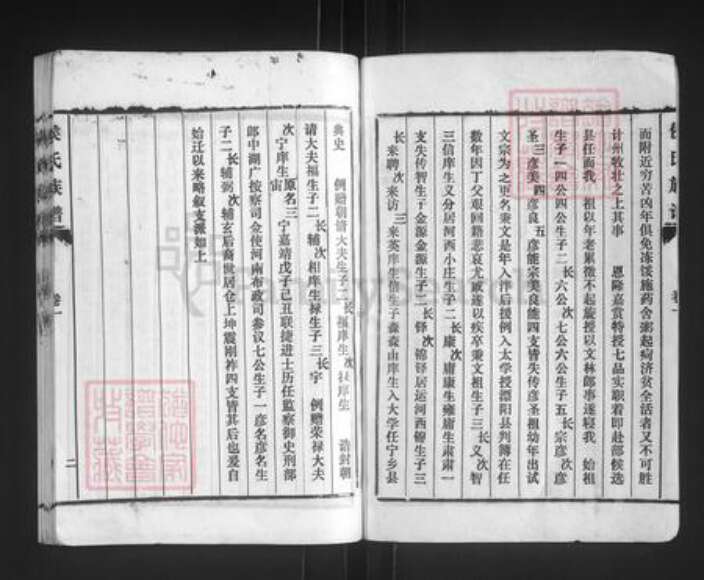 而附近穷苦凶年俱免冻馁施药舍粥起病济贫全活者又不可胜
计州牧壮之上其事 恩隆嘉赏特授七品实职着即赴部候选
县任而我 祖以年老累微不起旋授以文林郎事遂寝我 始祖
生子一四公四公生子二长六公次七公六公生子五长宗彦次彦
圣三彦美四彦良五彦能宗美良能四支皆失传彦圣祖幼年出试
文宗为之更名秉文是年入泮后援例入太学授溧阳县判簿在任
数年因丁父艰回籍悲哀尤戚遂以疾卒秉文祖生子三长义次智
三信庠生义分居河西小庄生子二长康次庸康生雍庸生肃肃一
支失传智生子金源金源生子二长铎次锦铎居运河西锦生子三
长来聘次来访三来英庠生信生子森森由庠生入大学任宁乡县
侯氏族谱
卷一
典史 例赠朝请大夫生子二长福庠生次祯庠生 诰封朝
请大夫福生子二长辅次相庠生禄生子三长宇 例赠荣禄大夫
次宁庠生宙原名三宁嘉靖戊子己丑联捷进士历任监察御史刑部
郎中湖广按察司佥使河南布政司参议七公生子一彦名彦名生
子二长辅弼次辅玄后裔世居仓上坤震刚祚四支皆其后也爰自
始迁以来略叙支派如上
侯氏族谱
卷一
二